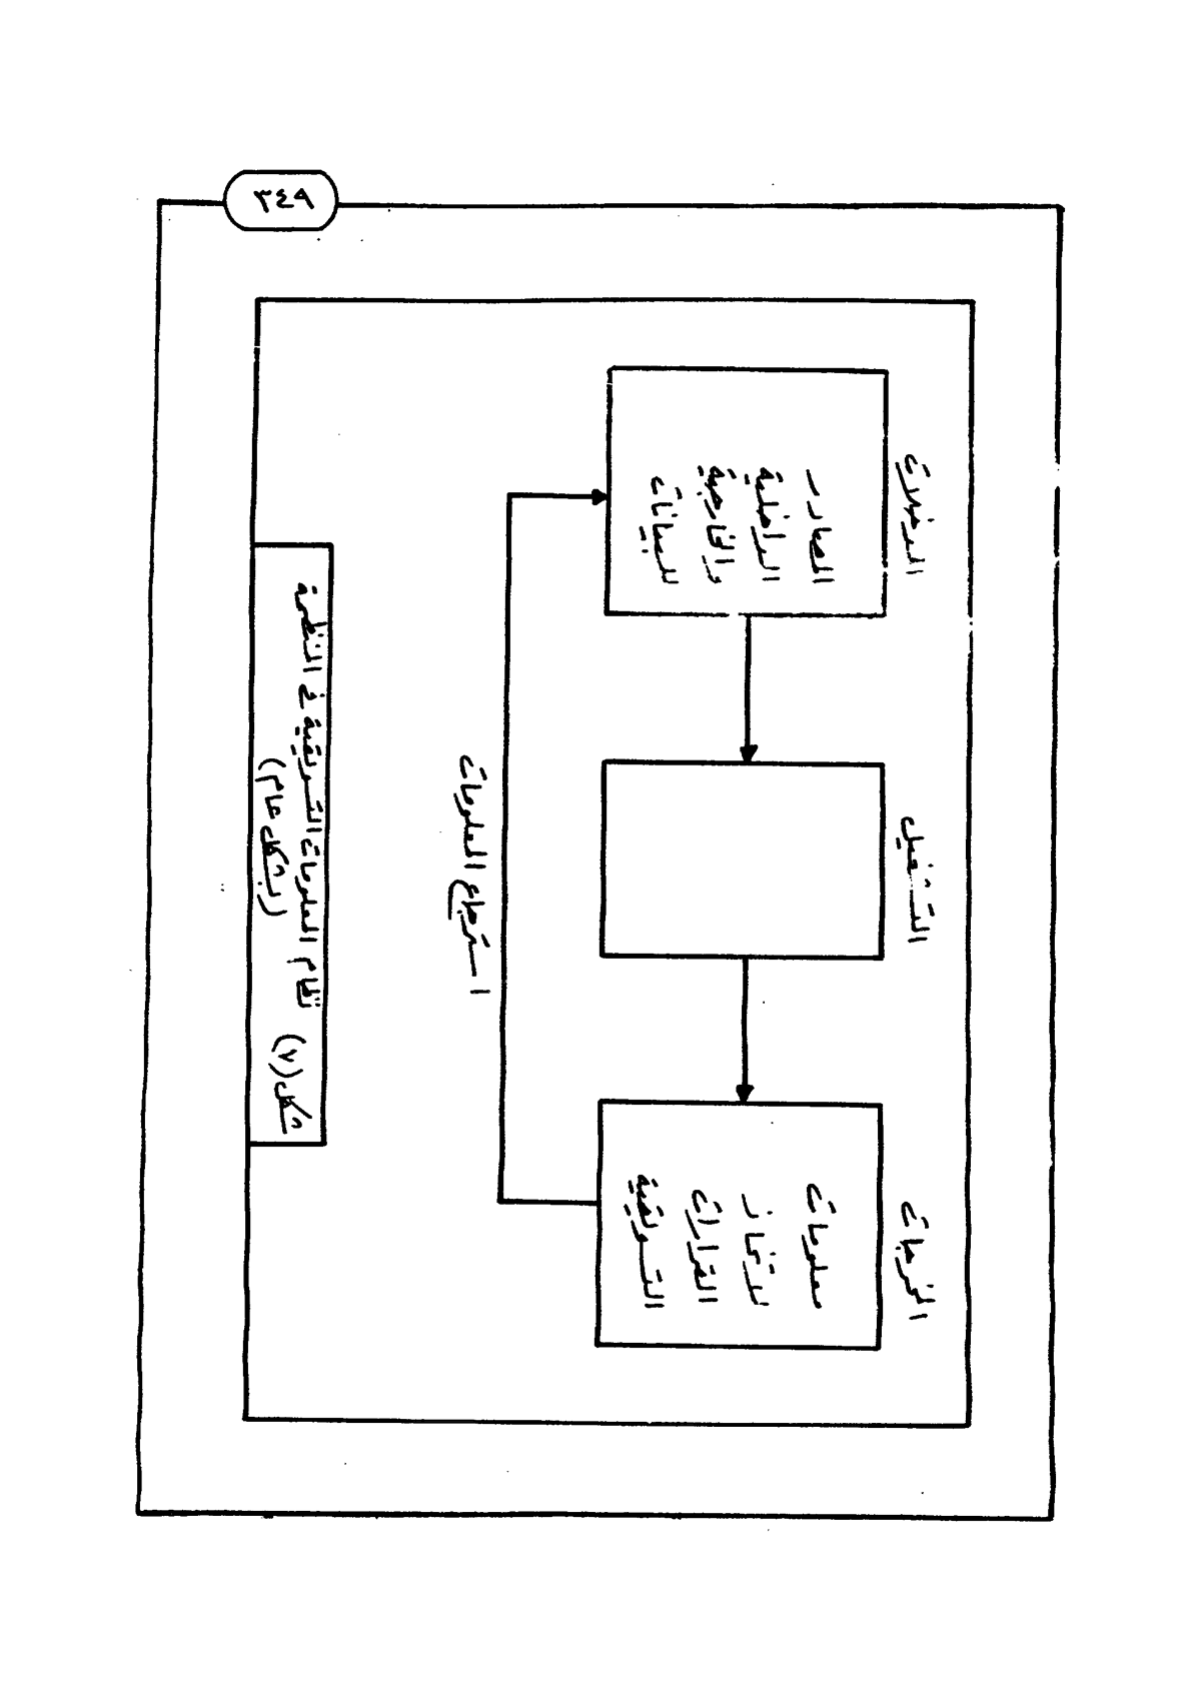 ٣٤٩
المدخلات
المصادر
الداخلية
والخارجية
للبيانات
التشغيل
المخرجات
معلومات
لاتخاذ
القرارات
التسويقية
استرجاع المعلومات
شكل (٧) نظام المعلومات التسويقية فى المنظمة
(بشكل عام)